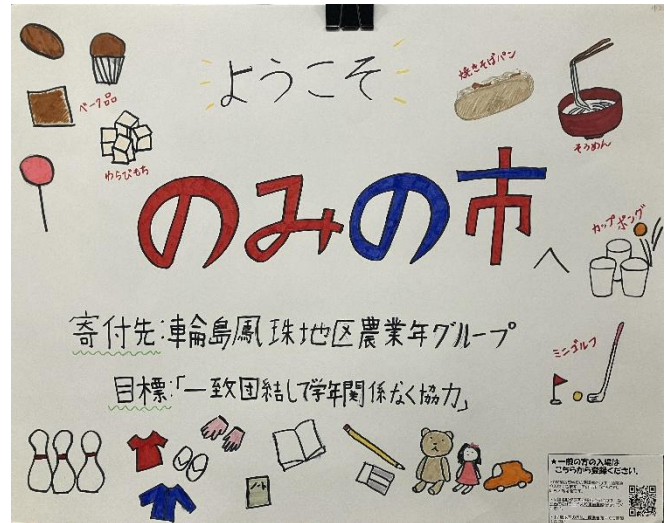 ようこそ
ベーク品
わらびもち
焼きそばパン
そうめん
のみの市へ
カップポング
寄付先:輪島鳳珠地区農業年グループ
ミニゴルフ
目標:「一致団結して学年関係なく協力」
ノート
★一般の方の入場は
こちらから登録ください.